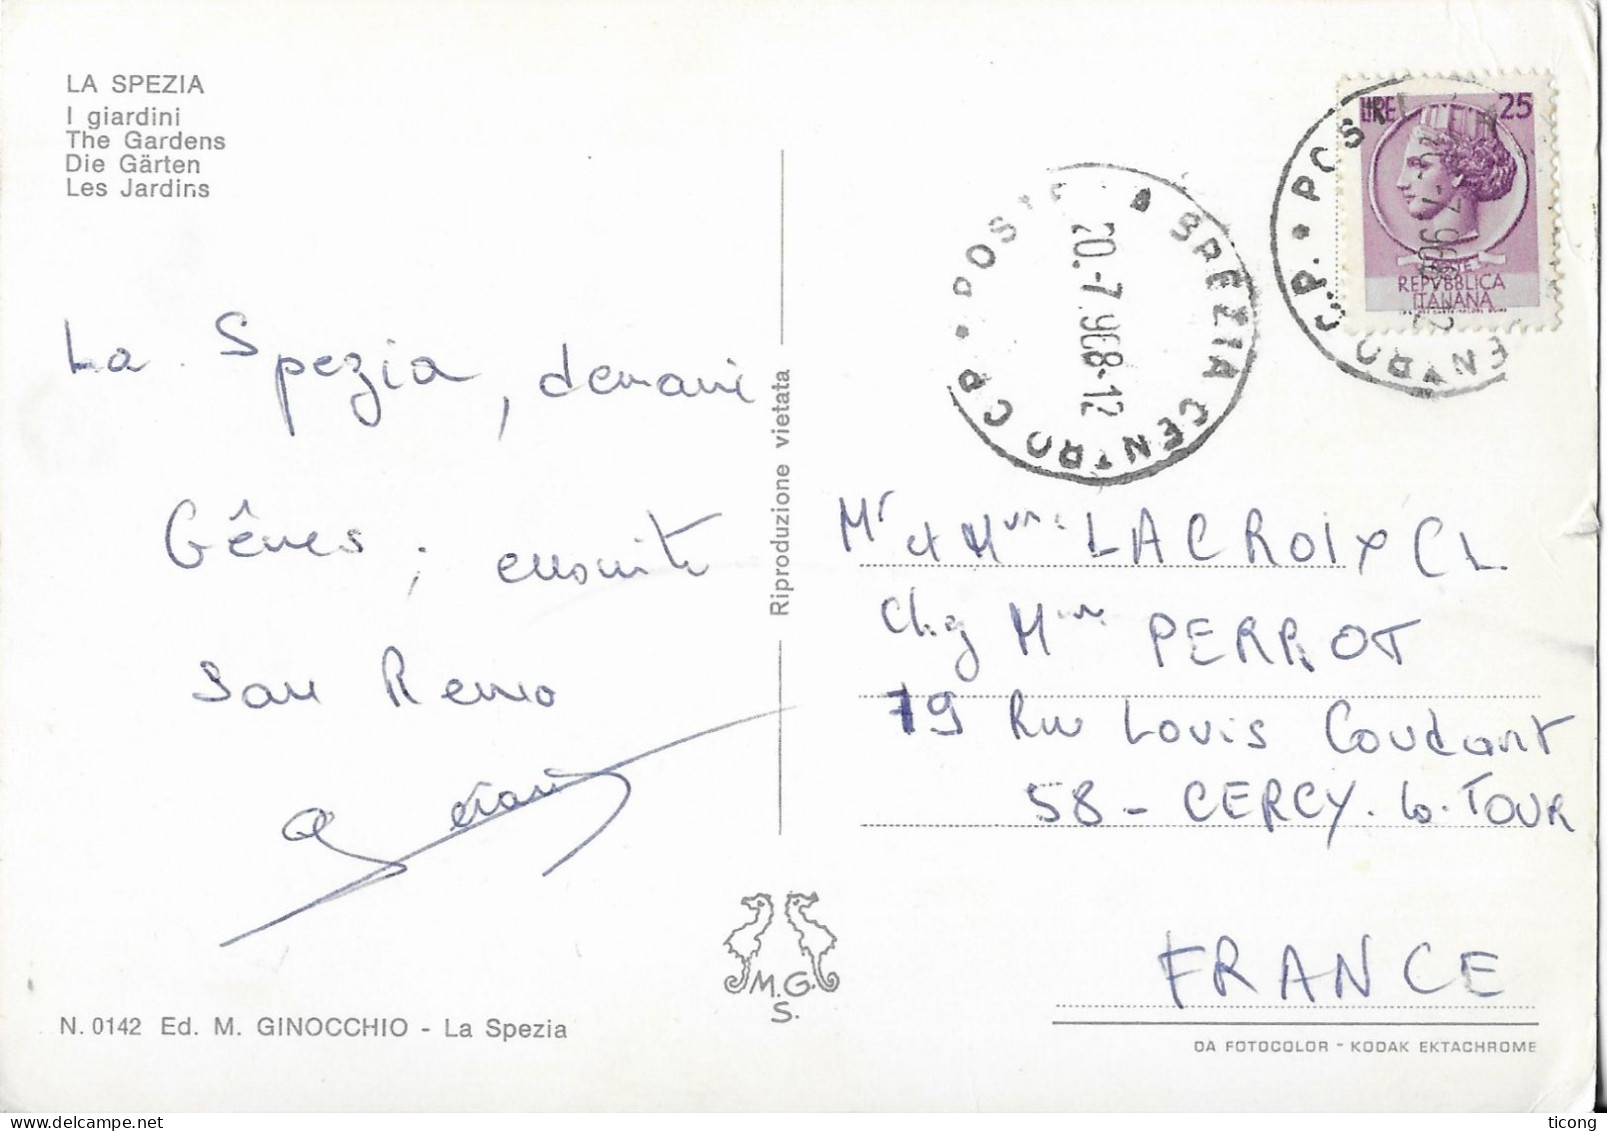 LA SPEZIA
I giardini
The Gardens
Die Gärten
Les Jardins
La Spezia, demain
Gênes, ensuite
San Remo
Riproduzione vietata
M.G.
S.
N. 0142 Ed. M. GINOCCHIO - La Spezia
LIRE 25
POSTE
REPVBBLICA
ITALIANA
POSTE LA SPEZIA CENTRO C.P.
20.-7.968-12
POSTE CENTRO C.P.
Mr et Mme LACROIX CL
chez Mme PERROT
19 Rue Louis Coudant
58 - CERCY-la-TOUR
FRANCE
DA FOTOCOLOR - KODAK EKTACHROME
ticong